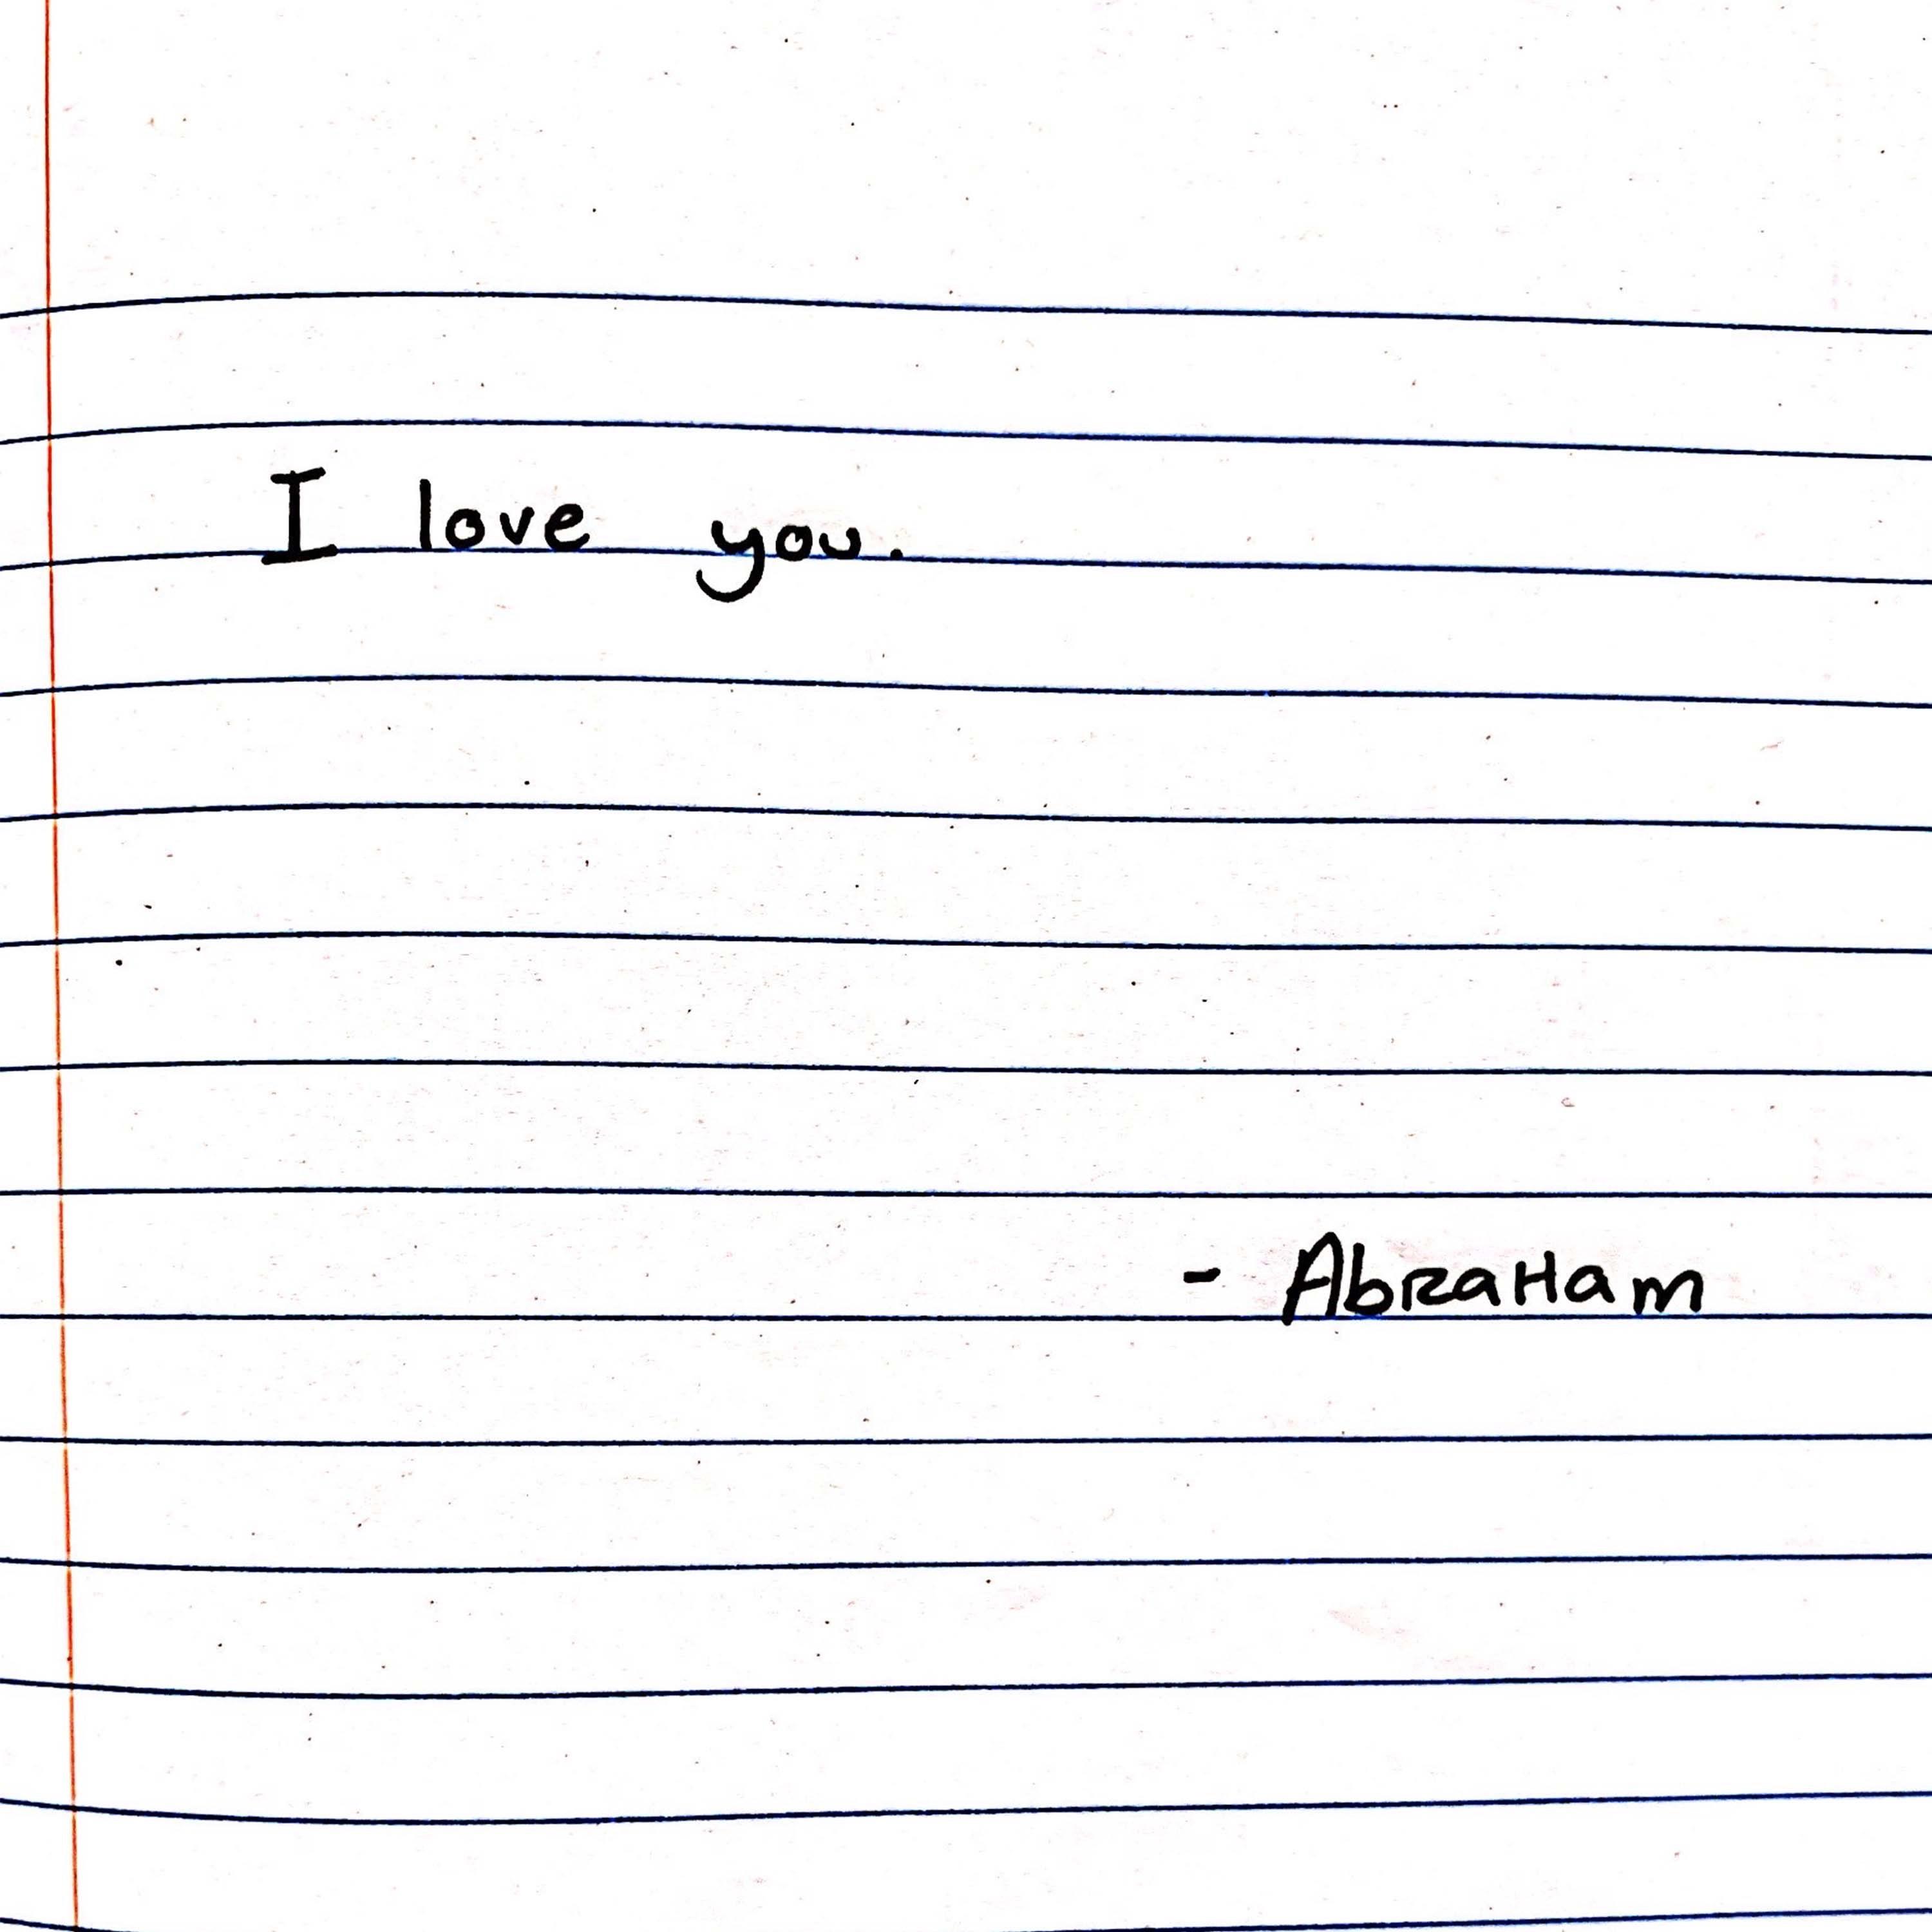 I love you.
- AbraHam